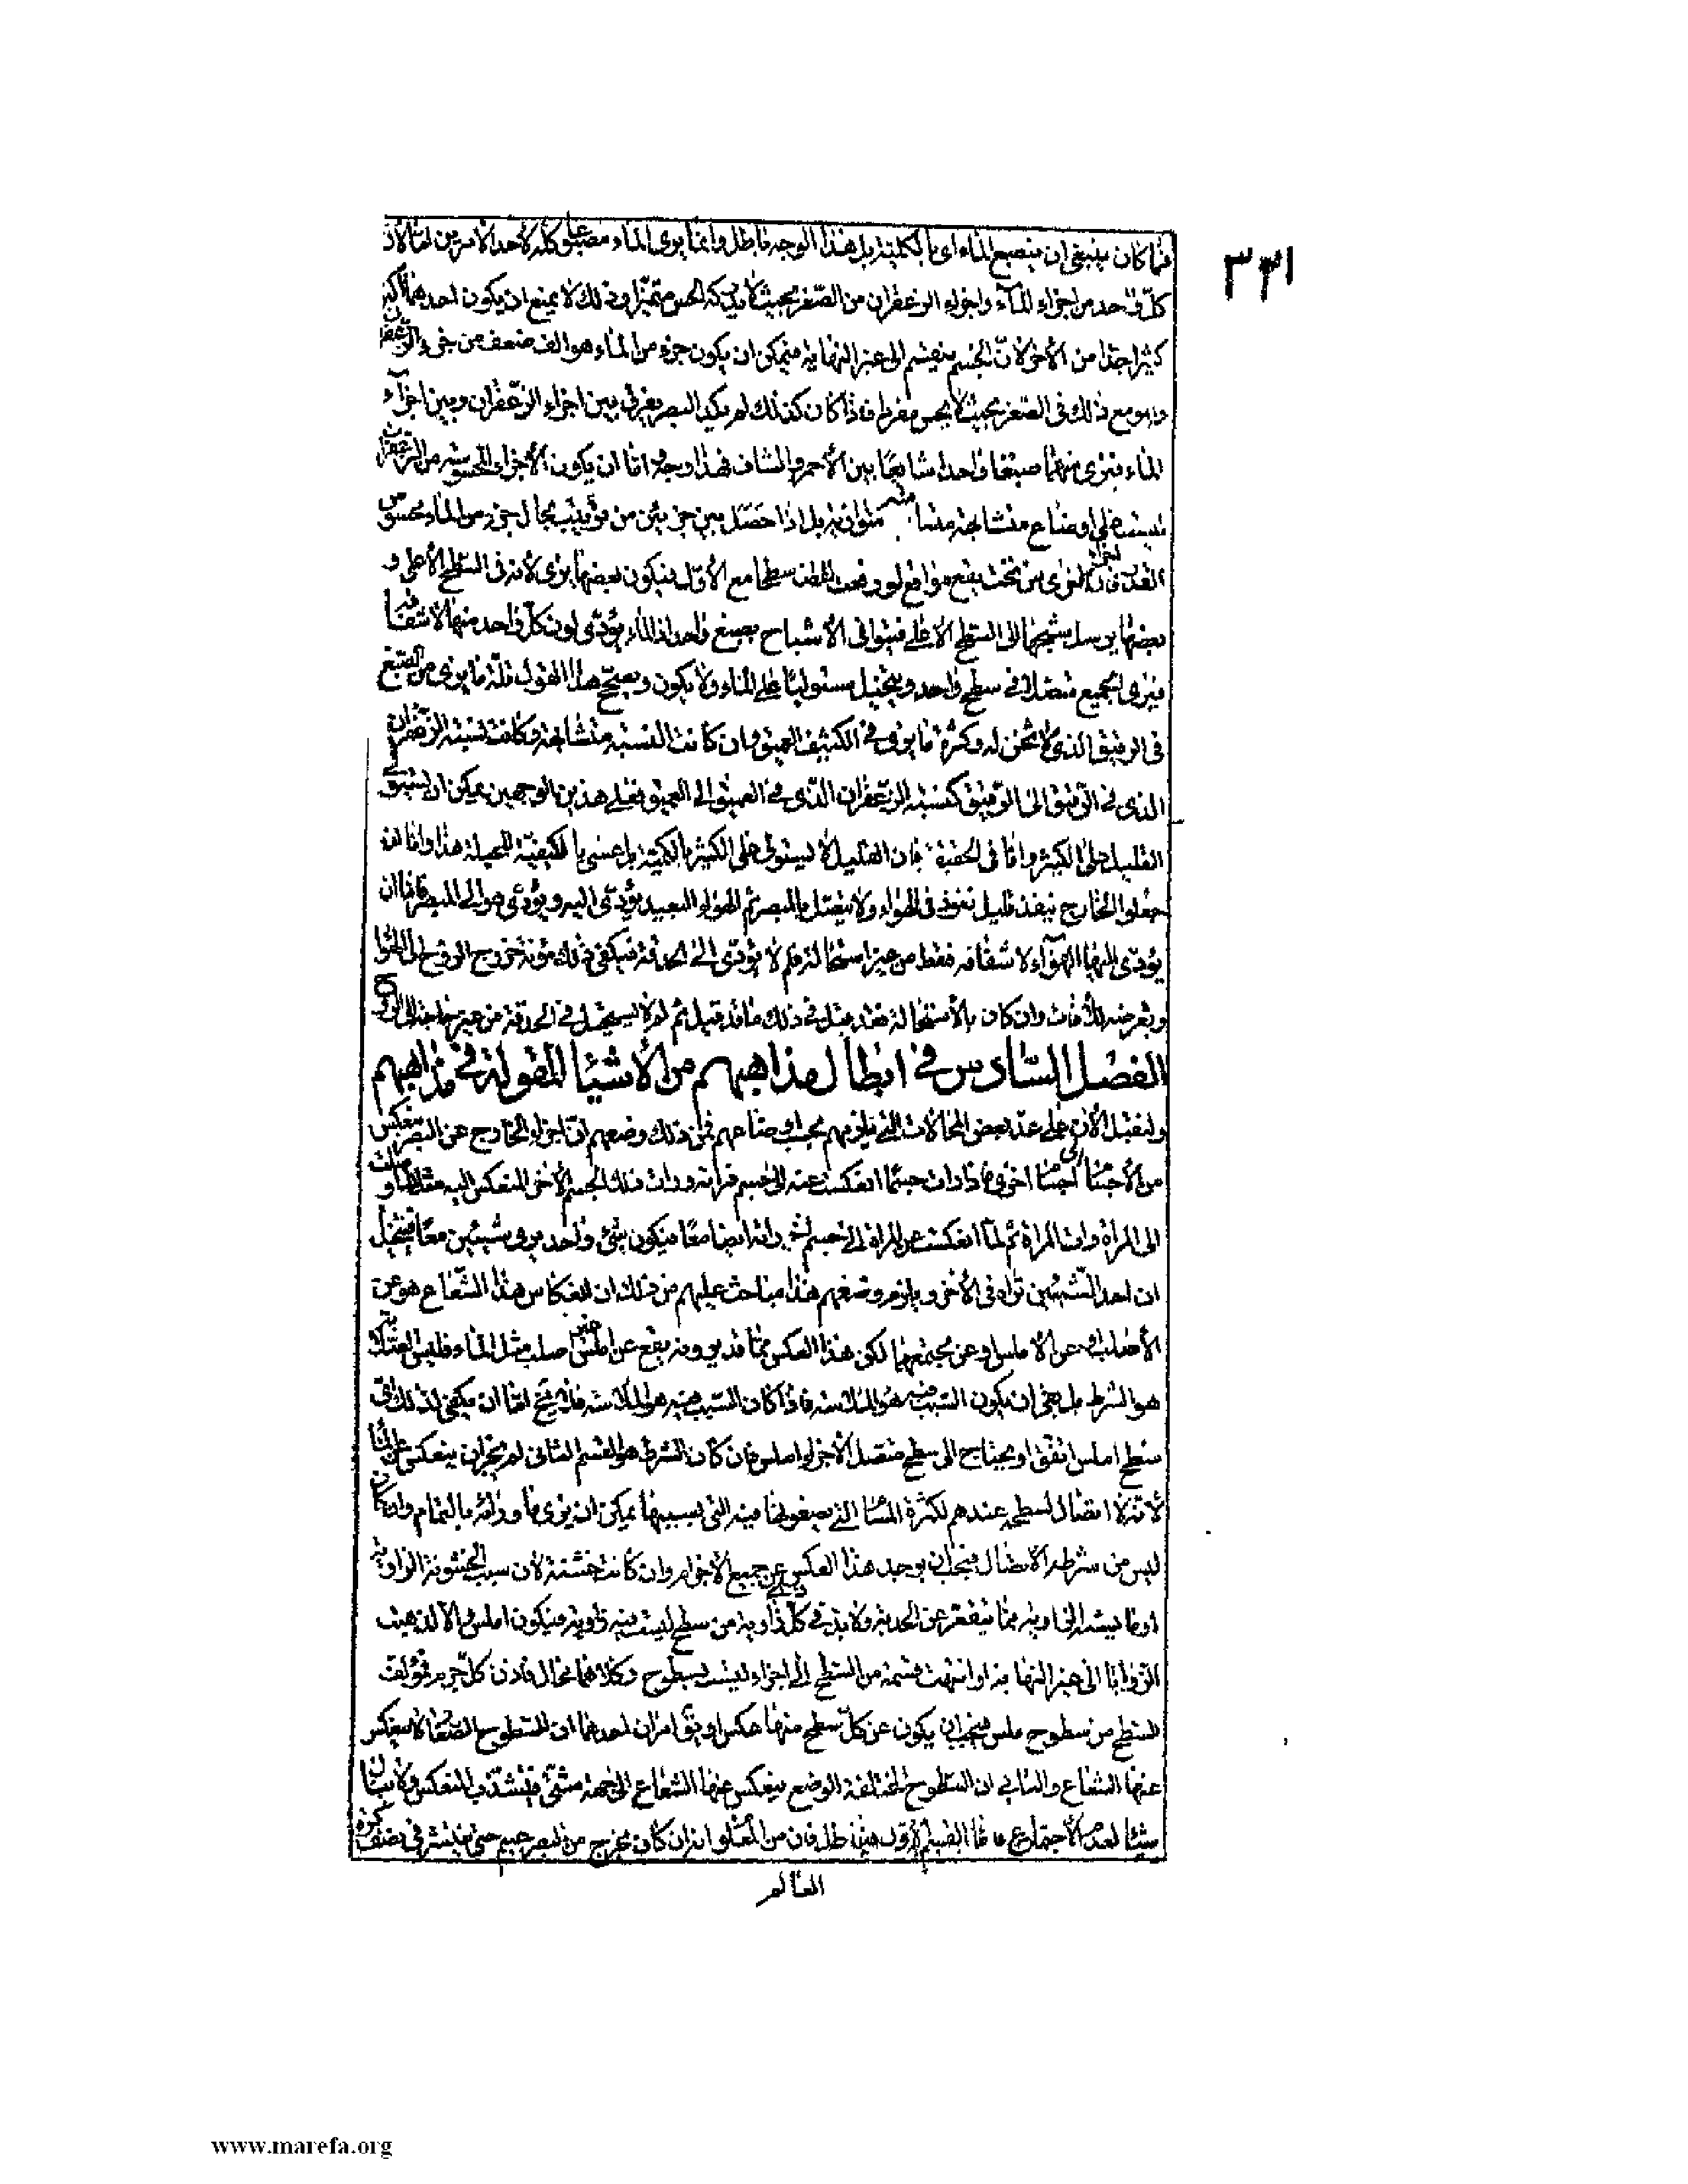 ٣٣١
فما كان ينبغي ان ينصبغ الماء اي بالكلية بل هذا الوجه باطل وانما يرى الماء مصبوغا كله لاحد الامرين اما لان
كل واحد من اجزاء الماء واجزاء الزعفران من الصغر بحيث لا يدركه الحس متميزا وذلك لا يمنع ان يكون احدهما اكثر
كثيرا جدا من الاخر لان الجسم ينقسم الى غير النهاية فيمكن ان يكون جزء من الماء هو الف ضعف من جزء الزعفران
وهو مع ذلك في الصغر بحيث لا يحس مفردا فاذا كان كذلك لم يكد البصر يفرق بين اجزاء الزعفران وبين اجزاء
الماء فيرى منهما صبغا واحدا شايعا بين الاحمر والشاف فهذا وجه واما ان يكون الاجزاء المحسوسة من الزعفران
ليست على اوضاع متشابهة متسامتة متوازنة بل اذا حصل بين جزئين من ترتيب بحال جزء من الماء محسوس
القدر فان اجزاء اخرى من تحت يقع مواقع لو رفعت لغطت سطحا مع الاول فيكون بعضها يرى لانه في السطح الاعلى و
بعضها يرسل شبحها الى السطح الاعلى فيتوافى الاشباح بصبغ واحد اذ الماء يؤدى لون كل واحد منها لاشفافه
فيرى الجميع متصلا في سطح واحد ويتخيل مستوليا على الماء ولا يكون ويصحح هذا القول قلة ما يرى من الصبغ
في الرقيق الذي لا ثخن له وكثرة ما يرى في الكثيف العميق وان كانت النسبة متشابهة وكانت نسبة الزعفران
الذي في الرقيق الى الرقيق كنسبة الزعفران الذي في العميق الى العميق فعلى هذين الوجهين يمكن ان يستولى
القليل على الكثير واما في الحقيقة فان القليل لا يستولى على الكثير بالكمية بل عسى بالكيفية المحيلة هذا واما ان
جعلوا الخارج ينفذ قليل نفوذ في الهواء ولا يتصل بالمبصر ثم الهواء البعيد يؤدى اليه ويؤدى هو الى المبصر فاما ان
يؤدى اليها الهواء لاشفافه فقط من غير استحالة فلم لا يؤدى الى الحدقة فيكفي ذلك مؤنة خروج الروح الى الهواء
وتعرضه للآفات وان كان بالاستحالة فقد قيل في ذلك ما قد قيل ثم لم لا يستحيل في الحدقة من غير حاجة الى الروح
الفصل السادس في ابطال مذاهبهم من الاشياء المقولة في مذاهبهم
ولنقبل الآن على عد بعض المحالات التي تلزمهم بحسب اوضاعهم فمن ذلك وضعهم ان اجزاء الخارج عن البصر تنعكس
من الاجسام الى اجسام اخرى فاذا رات جسما انعكست عنه الى جسم فراته ورات ذلك الجسم الاخر المنعكس اليه مثلا لما وصلت
الى المرآة رات المرآة ثم لما انعكست عن المرآة الى جسم اخر رأته ايضا معا فيكون شئ واحد يرى شيئين معا فيتخيل
ان احد الشيئين تراه في الاخر ويلزم وضعهم هذا مباحث عليهم من ذلك ان انعكاس هذا الشعاع هو عن
الاصلب عن الاملس او عن مجتمعهما لكن هذا العكس مما قد يرونه يقع عن املس غير صلب مثل الماء فليس الصلابة
هو الشرط بل بقى ان يكون السبب فيه هو الملاسة فاذا كان السبب فيه هو الملاسة فلا يخ اما ان يكفي لذلك اى
سطح املس اتفق او يحتاج الى سطح متصل الاجزاء املس فان كان الشرط هو القسم الثاني لم يجز ان ينعكس عن الماء
لانه لا اتصال لسطحه عندهم لكثرة المسام التي يضعونها فيه التي بسببها يمكن ان يرى ما وراءه بالتمام وان كان
ليس من شرطه الاتصال فيجب ان يوجد هذا العكس عن جميع الاجرام وان كانت خشنة لان سبب الخشونة الزاوية
او ما يشبه الزاوية مما يتقعر عن الحدبة ولا بد في كل ذي زاوية من سطح ليست فيه زاوية فيكون املس والا لذهبت
الزوايا الى غير النهاية او انتهت قسمة من السطح الى اجزاء ليست بسطوح وكلاهما محال فاذن كل جرم مؤلف
السطح من سطوح ملس فيجب ان يكون عن كل سطح منها عكس او يق امران احدهما ان السطوح الصغار لا ينعكس
عنها الشعاع والثاني ان السطوح المختلفة الوضع ينعكس عنها الشعاع الى جهة شتى فيتشذب المنعكس ولا ينال
شيئا لعدم الاجتماع فاما القسم الاول فباطل فان من المعلوم انه ان كان يخرج من البصر جسم حتى ينتشر في نصف كرة
العالم
www.marefa.org